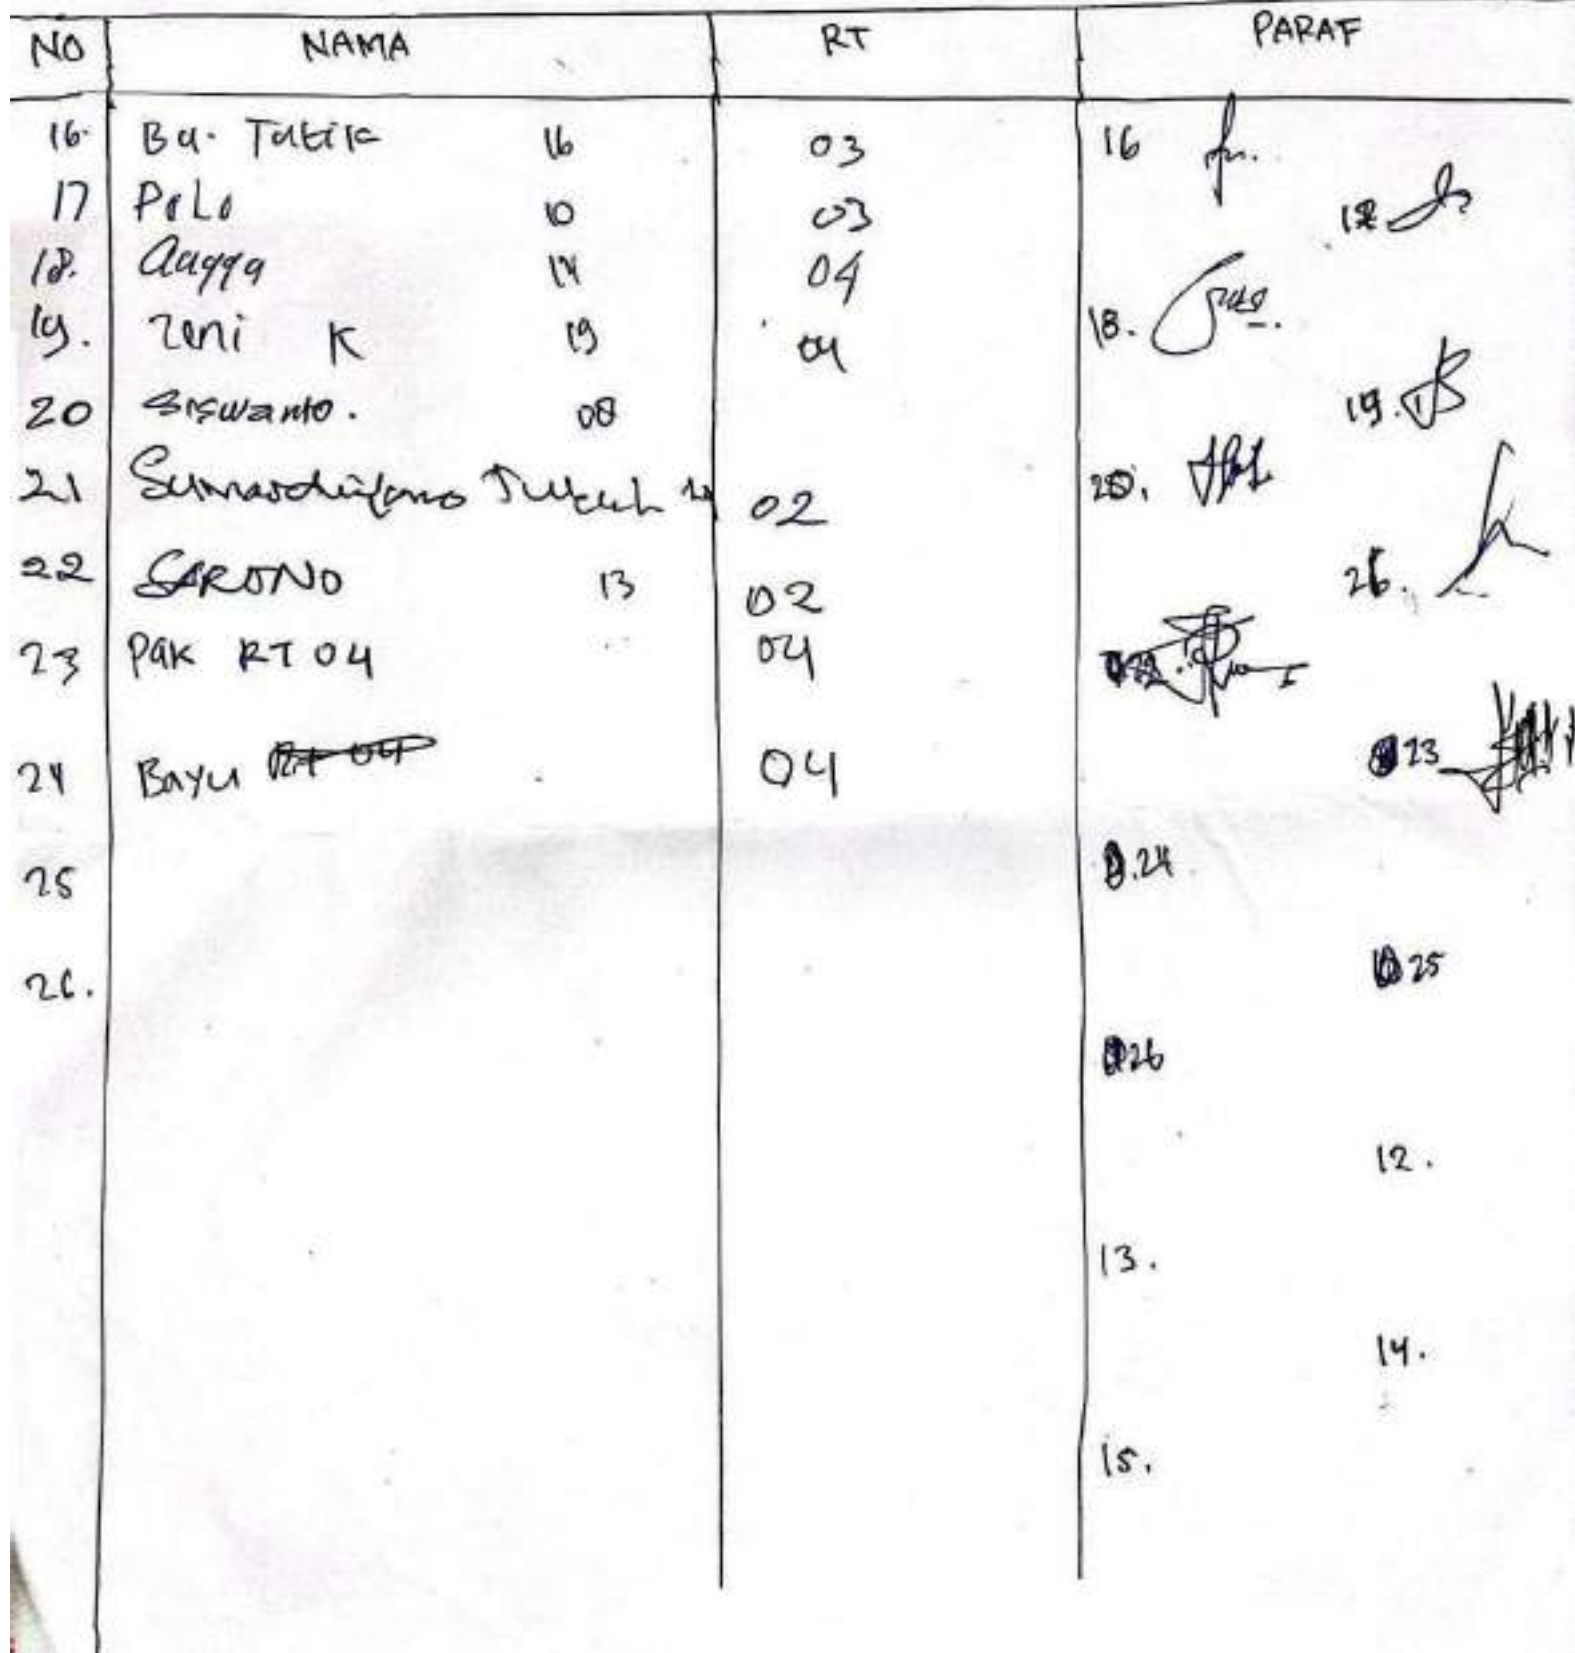 NO NAMA RT PARAF
16. Bu. Tatik 16 03 16
17 Polo 10 03
18. Angga 14 04 18.
19. Zeni K 19 04 19.
20 Siswanto. 08 20.
21 02
22 SARONO 13 02
23 Pak RT 04 04 22
24 Bayu RT 04 04 23
25 24
26. 25
26
12.
13.
14.
15.